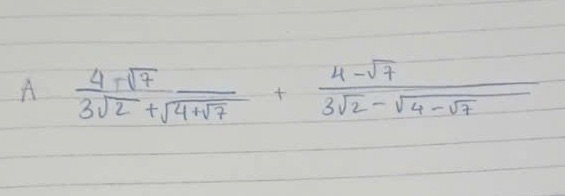 A (4+√7)/(3√2 + √(4+√7)) + (4-√7)/(3√2 - √(4-√7))